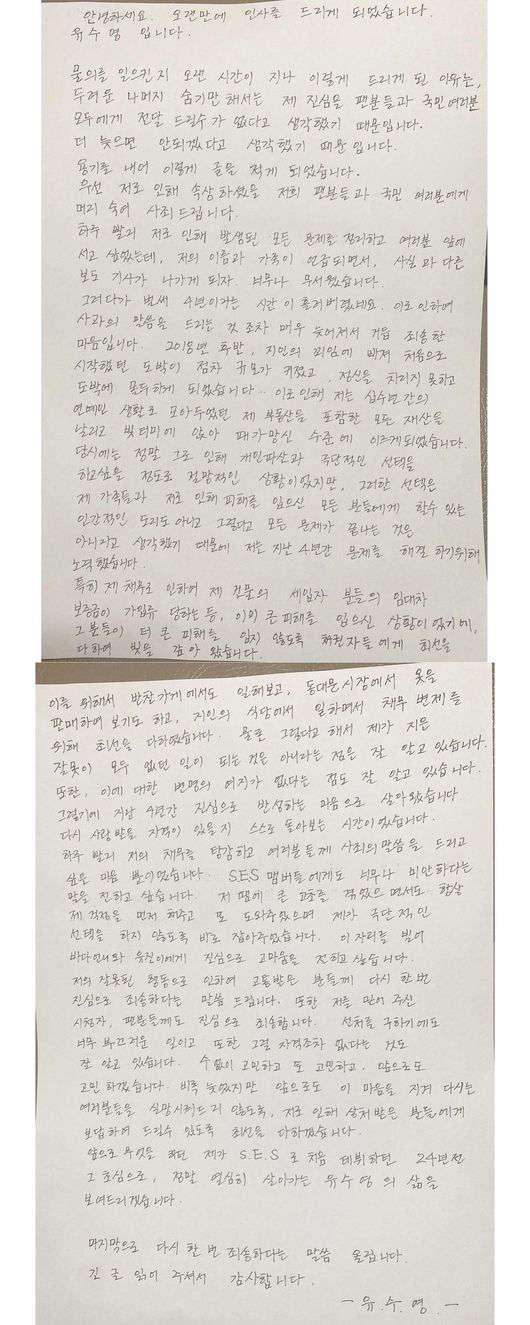 안녕하세요. 오랜만에 인사를 드리게 되었습니다.
유수영 입니다.
물의를 일으킨지 오랜 시간이 지나 이렇게 드리게 된 이유는,
두려운 나머지 숨기만 해서는 제 진심을 팬분들과 국민 여러분
모두에게 전달 드릴수가 없다고 생각했기 때문입니다.
더 늦으면 안되겠다고 생각했기 때문 입니다.
용기를 내어 이렇게 글을 적게 되었습니다.
우선 저로 인해 속상하셨을 저희 팬분들과 국민 여러분에게
머리 숙여 사죄드립니다.
하루 빨리 저로 인해 발생된 모든 문제를 정리하고 여러분 앞에
서고 싶었는데, 저의 이름과 가족이 언급되면서, 사실과 다른
보도 기사가 나가게 되자. 너무나 무서웠습니다.
그러다가 벌써 4년이라는 시간이 흘러버렸네요. 이로 인하여
사과의 말씀을 드리는 것 조차 매우 늦어져서 거듭 죄송한
마음입니다. 2018년 후반, 지인의 꾀임에 빠져 처음으로
시작했던 도박이 점차 규모가 커졌고, 정신을 차리지 못하고
도박에 몰두하게 되었습니다.. 이로 인해 저는 십수년간의
연예인 생활로 모아두었던 제 부동산을 포함한 모든 재산을
날리고 빚더미에 앉아 패가망신 수준에 이르게되었습니다.
당시에는 정말 그로 인해 개인파산과 극단적인 선택을
하고싶을 정도로 절망적인 상황이었지만, 그러한 선택은
제 가족들과 저로 인해 피해를 입으신 모든 분들에게 할수 있는
인간적인 도리도 아니고 그렇다고 모든 문제가 끝나는 것은
아니라고 생각했기 때문에 저는 지난 4년간 문제를 해결 하기위해
노력했습니다.
특히 제 채무로 인하여 제 건물의 세입자 분들의 임대차
보증금이 가압류 당하는 등, 이미 큰 피해를 입으신 상황이 었기에,
그 분들이 더 큰 피해를 입지 않도록 채권자들에게 최선을
다하여 빚을 갚아 왔습니다.
이를 위해서 반찬가게에서도 일해보고, 동대문 시장에서 옷을
판매하여 보기도 하고, 지인의 식당에서 일하면서 채무 변제를
위해 최선을 다하였습니다. 물론 그렇다고 해서 제가 지은
잘못이 모두 없던 일이 되는 것은 아니라는 점은 잘 알고 있습니다.
또한, 이에 대한 변명의 여지가 없다는 점도 잘 알고 있습니다.
그렇기에 지난 4년간 진심으로 반성하는 마음으로 살아왔습니다.
다시 사랑받을 자격이 있을지 스스로 돌아보는 시간이었습니다.
하루 빨리 저의 채무를 탕감하고 여러분들께 사죄의 말씀을 드리고
싶은 마음 뿐이었습니다. SES 멤버들에게도 너무나 미안하다는
말을 전하고 싶습니다. 저 땜에 큰 고초를 겪었으면서도 항상
제 걱정을 먼저 해주고 또 도와주었으며 제가 극단적인
선택을 하지 않도록 바로 잡아주었습니다. 이 자리를 빌어
바다언니와 유진이에게 진심으로 고마움을 전하고 싶습니다.
저의 잘못된 행동으로 인하여 고통받은 분들께 다시 한번
진심으로 죄송하다는 말씀 드립니다. 또한 저를 믿어 주신
시청자, 팬분들께도 진심으로 죄송합니다. 선처를 구하기에도
너무 부끄러운 일이고 또한 그럴 자격조차 없다는 것도
잘 알고 있습니다. 수없이 고민하고 또 고민하고, 앞으로도
고민 하겠습니다. 비록 늦었지만 앞으로도 이 마음을 지켜 다시는
여러분들을 실망시켜드리지 않도록, 저로 인해 상처 받은 분들에게
보답하여 드릴수 있도록 최선을 다하겠습니다.
앞으로 무엇을 하던 제가 S.E.S 로 처음 데뷔하던 24년전
그 초심으로, 정말 열심히 살아가는 유수영의 삶을
보여드리겠습니다.
마지막으로 다시 한 번 죄송하다는 말씀 올립니다.
긴 글 읽어 주셔서 감사합니다.
- 유.수.영. -